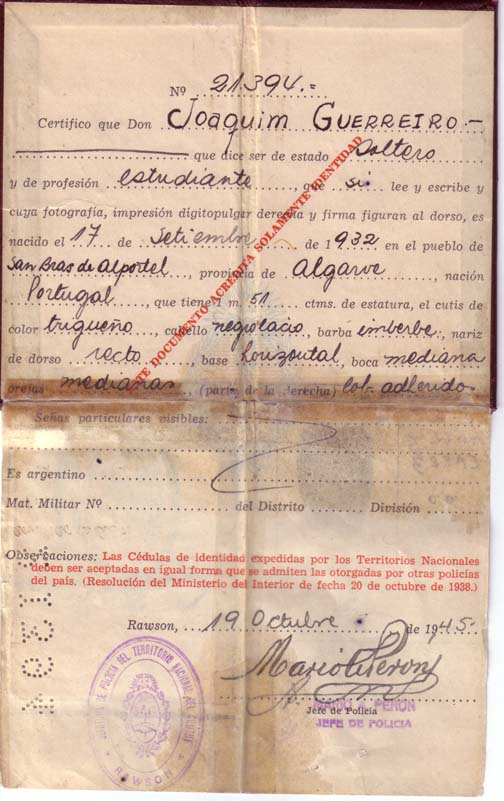 Nº 21.394.=
Certifico que Don Joaquim Guerreiro —
que dice ser de estado Soltero
y de profesión estudiante, que si lee y escribe y
cuya fotografía, impresión dígitopulgar derecha y firma figuran al dorso, es
nacido el 17 de Setiembre de 1932 en el pueblo de
San Bras de Alportel, provincia de Algarve, nación
Portugal, que tiene 1 m. 51 ctms. de estatura, el cutis de
color trigueño, cabello negro lacio, barba emberbe, nariz
de dorso recto, base horizontal, boca mediana
orejas medianas, (parte de la derecha) lob. adheridos
ESTE DOCUMENTO ACREDITA SOLAMENTE IDENTIDAD
Señas particulares visibles:
Es argentino
Mat. Militar Nº del Distrito División
Observaciones: Las Cédulas de identidad expedidas por los Territorios Nacionales
deben ser aceptadas en igual forma que se admiten las otorgadas por otras policías
del país. (Resolución del Ministerio del Interior de fecha 20 de octubre de 1938.)
Rawson, 19 Octubre de 1945.
Mario A. Peron
Jefe de Policía
MARIO A. PERON
JEFE DE POLICIA
DE POLICIA DEL TERRITORIO NACIONAL DEL CHUBUT
RAWSON